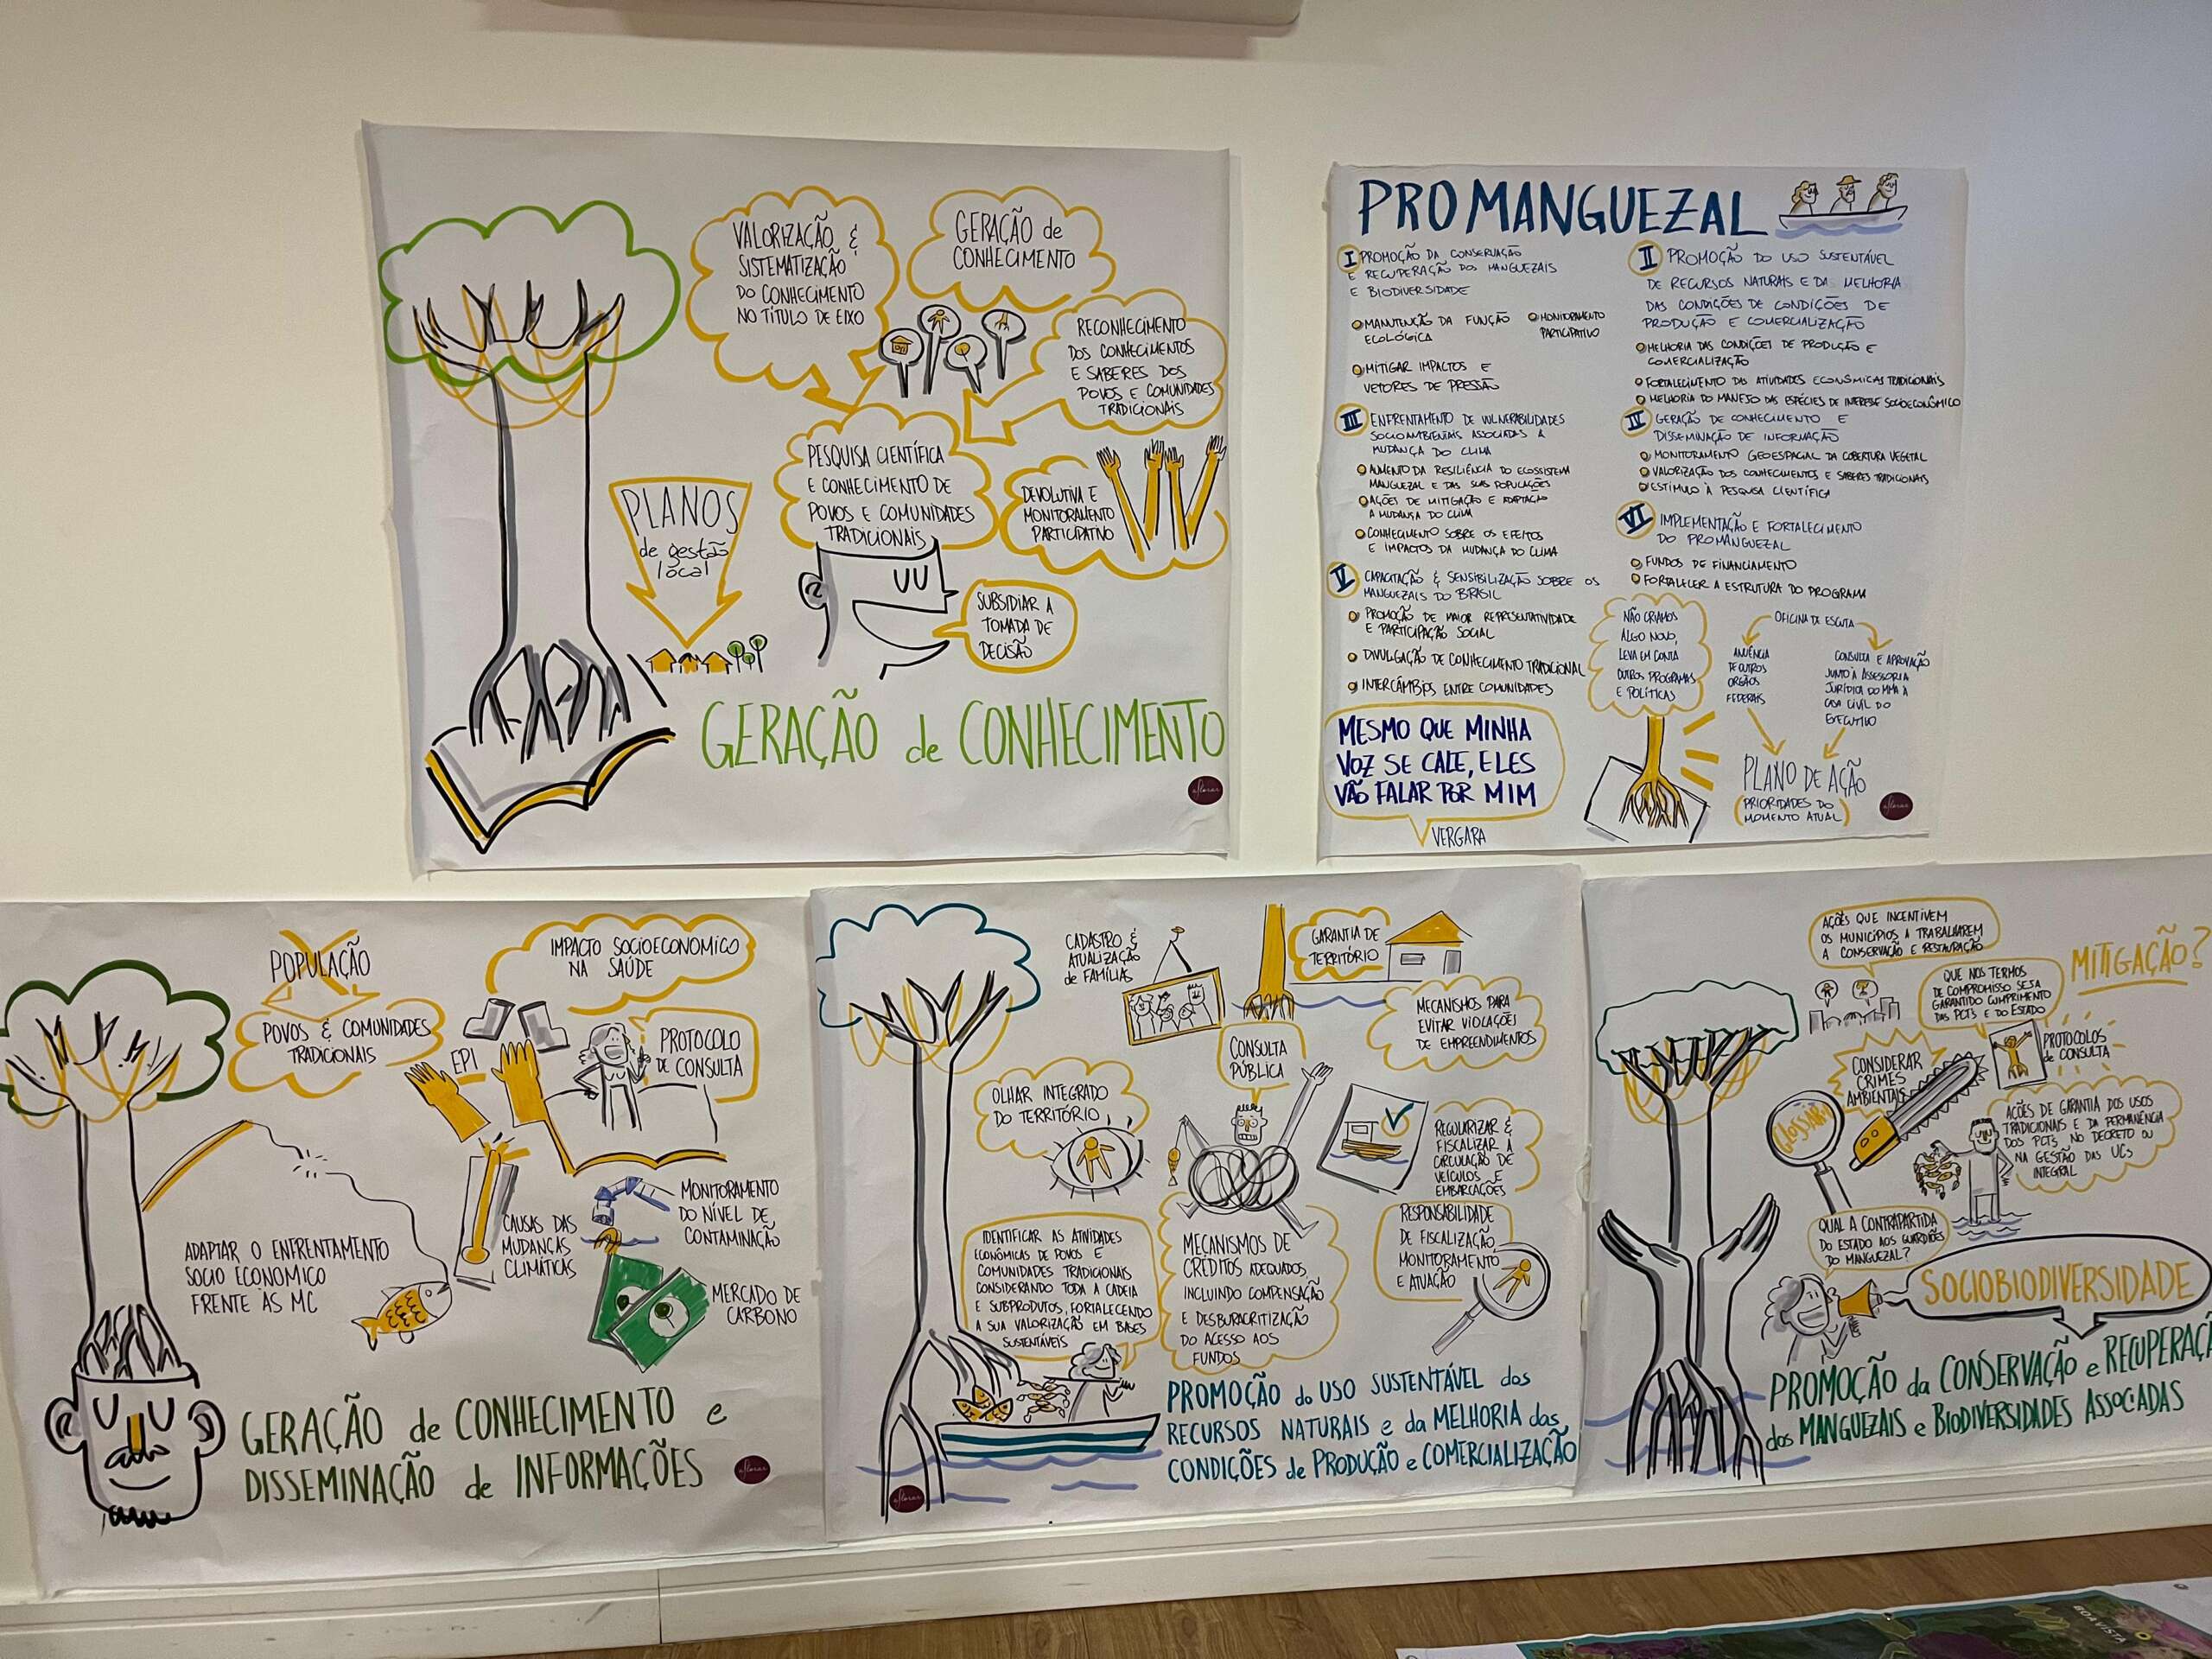 VALORIZAÇÃO &
SISTEMATIZAÇÃO
DO CONHECIMENTO
NO TÍTULO DE EIXO
GERAÇÃO de
CONHECIMENTO
RECONHECIMENTO
DOS CONHECIMENTOS
E SABERES DOS
POVOS E COMUNIDADES
TRADICIONAIS
PLANOS
de gestão
local
PESQUISA CIENTÍFICA
E CONHECIMENTO DE
POVOS E COMUNIDADES
TRADICIONAIS
DEVOLUTIVA E
MONITORAMENTO
PARTICIPATIVO
SUBSIDIAR A
TOMADA DE
DECISÃO
GERAÇÃO de CONHECIMENTO
aflorar
PROMANGUEZAL
I PROMOÇÃO DA CONSERVAÇÃO
E RECUPERAÇÃO DOS MANGUEZAIS
E BIODIVERSIDADE
MANUTENÇÃO DA FUNÇÃO
ECOLÓGICA
MONITORAMENTO
PARTICIPATIVO
MITIGAR IMPACTOS E
VETORES DE PRESSÃO
II PROMOÇÃO DO USO SUSTENTÁVEL
DE RECURSOS NATURAIS E DA MELHORIA
DAS CONDIÇÕES DE CONDIÇÕES DE
PRODUÇÃO E COMERCIALIZAÇÃO
MELHORIA DAS CONDIÇÕES DE PRODUÇÃO E
COMERCIALIZAÇÃO
FORTALECIMENTO DAS ATIVIDADES ECONÔMICAS TRADICIONAIS
MELHORIA DO MANEJO DAS ESPÉCIES DE INTERESSE SOCIOECONÔMICO
III ENFRENTAMENTO DE VULNERABILIDADES
SOCIOAMBIENTAIS ASSOCIADAS À
MUDANÇA DO CLIMA
AUMENTO DA RESILIÊNCIA DO ECOSSISTEMA
MANGUEZAL E DAS SUAS POPULAÇÕES
AÇÕES DE MITIGAÇÃO E ADAPTAÇÃO
A MUDANÇA DO CLIMA
CONHECIMENTO SOBRE OS EFEITOS
E IMPACTOS DA MUDANÇA DO CLIMA
IV GERAÇÃO DE CONHECIMENTO E
DISSEMINAÇÃO DE INFORMAÇÃO
MONITORAMENTO GEOESPACIAL DA COBERTURA VEGETAL
VALORIZAÇÃO DOS CONHECIMENTOS E SABERES TRADICIONAIS
ESTÍMULO À PESQUISA CIENTÍFICA
V CAPACITAÇÃO & SENSIBILIZAÇÃO SOBRE OS
MANGUEZAIS DO BRASIL
PROMOÇÃO DE MAIOR REPRESENTATIVIDADE
E PARTICIPAÇÃO SOCIAL
DIVULGAÇÃO DE CONHECIMENTO TRADICIONAL
INTERCÂMBIOS ENTRE COMUNIDADES
VI IMPLEMENTAÇÃO E FORTALECIMENTO
DO PROMANGUEZAL
FUNDOS DE FINANCIAMENTO
FORTALECER A ESTRUTURA DO PROGRAMA
NÃO CRIAMOS
ALGO NOVO,
LEVA EM CONTA
OUTROS PROGRAMAS
E POLÍTICAS
OFICINA DE ESCUTA
ANUÊNCIA
DE OUTROS
ORGÃOS
FEDERAIS
CONSULTA E APROVAÇÃO
JUNTO À ASSESSORIA
JURÍDICA DO MMA À
CASA CIVIL DO
EXECUTIVO
PLANO DE AÇÃO
(PRIORIDADES DO
MOMENTO ATUAL)
MESMO QUE MINHA
VOZ SE CALE, ELES
VÃO FALAR POR MIM
VERGARA
aflorar
POPULAÇÃO
POVOS & COMUNIDADES
TRADICIONAIS
IMPACTO SOCIOECONOMICO
NA SAÚDE
EPI
PROTOCOLO
DE CONSULTA
ADAPTAR O ENFRENTAMENTO
SOCIO ECONÔMICO
FRENTE ÀS MC
CAUSAS DAS
MUDANÇAS
CLIMÁTICAS
MONITORAMENTO
DO NÍVEL DE
CONTAMINAÇÃO
MERCADO DE
CARBONO
GERAÇÃO de CONHECIMENTO e
DISSEMINAÇÃO de INFORMAÇÕES
aflorar
CADASTRO &
ATUALIZAÇÃO
de FAMÍLIAS
GARANTIA DE
TERRITÓRIO
MECANISMOS PARA
EVITAR VIOLAÇÕES
DE EMPREENDIMENTOS
CONSULTA
PÚBLICA
OLHAR INTEGRADO
DO TERRITÓRIO
REGULARIZAR &
FISCALIZAR A
CIRCULAÇÃO DE
VEÍCULOS E
EMBARCAÇÕES
IDENTIFICAR AS ATIVIDADES
ECONÔMICAS DE POVOS E
COMUNIDADES TRADICIONAIS
CONSIDERANDO TODA A CADEIA
E SUBPRODUTOS, FORTALECENDO
A SUA VALORIZAÇÃO EM BASES
SUSTENTÁVEIS
MECANISMOS DE
CRÉDITOS ADEQUADOS,
INCLUINDO COMPENSAÇÃO
E DESBURACRITIZAÇÃO
DO ACESSO AOS
FUNDOS
RESPONSABILIDADE
DE FISCALIZAÇÃO
MONITORAMENTO
E ATUAÇÃO
PROMOÇÃO do USO SUSTENTÁVEL dos
RECURSOS NATURAIS e da MELHORIA das
CONDIÇÕES de PRODUÇÃO e COMERCIALIZAÇÃO
aflorar
AÇÕES QUE INCENTIVEM
OS MUNICÍPIOS A TRABALHAREM
A CONSERVAÇÃO E RESTAURAÇÃO
MITIGAÇÃO?
QUE NOS TERMOS
DE COMPROMISSO SEJA
GARANTIDO CUMPRIMENTO
DAS PCTS E DO ESTADO
PROTOCOLOS
de CONSULTA
CONSIDERAR
CRIMES
AMBIENTAIS
GLOSSÁRIO
AÇÕES DE GARANTIA DOS USOS
TRADICIONAIS E DA PERMANÊNCIA
DOS PCTS, NO DECRETO OU
NA GESTÃO DAS UCS
INTEGRAL
QUAL A CONTRAPARTIDA
DO ESTADO AOS GUARDIÕES
DO MANGUEZAL?
SOCIOBIODIVERSIDADE
PROMOÇÃO da CONSERVAÇÃO e RECUPERAÇÃ
dos MANGUEZAIS e BIODIVERSIDADES ASSOCADAS
BOA VISTA